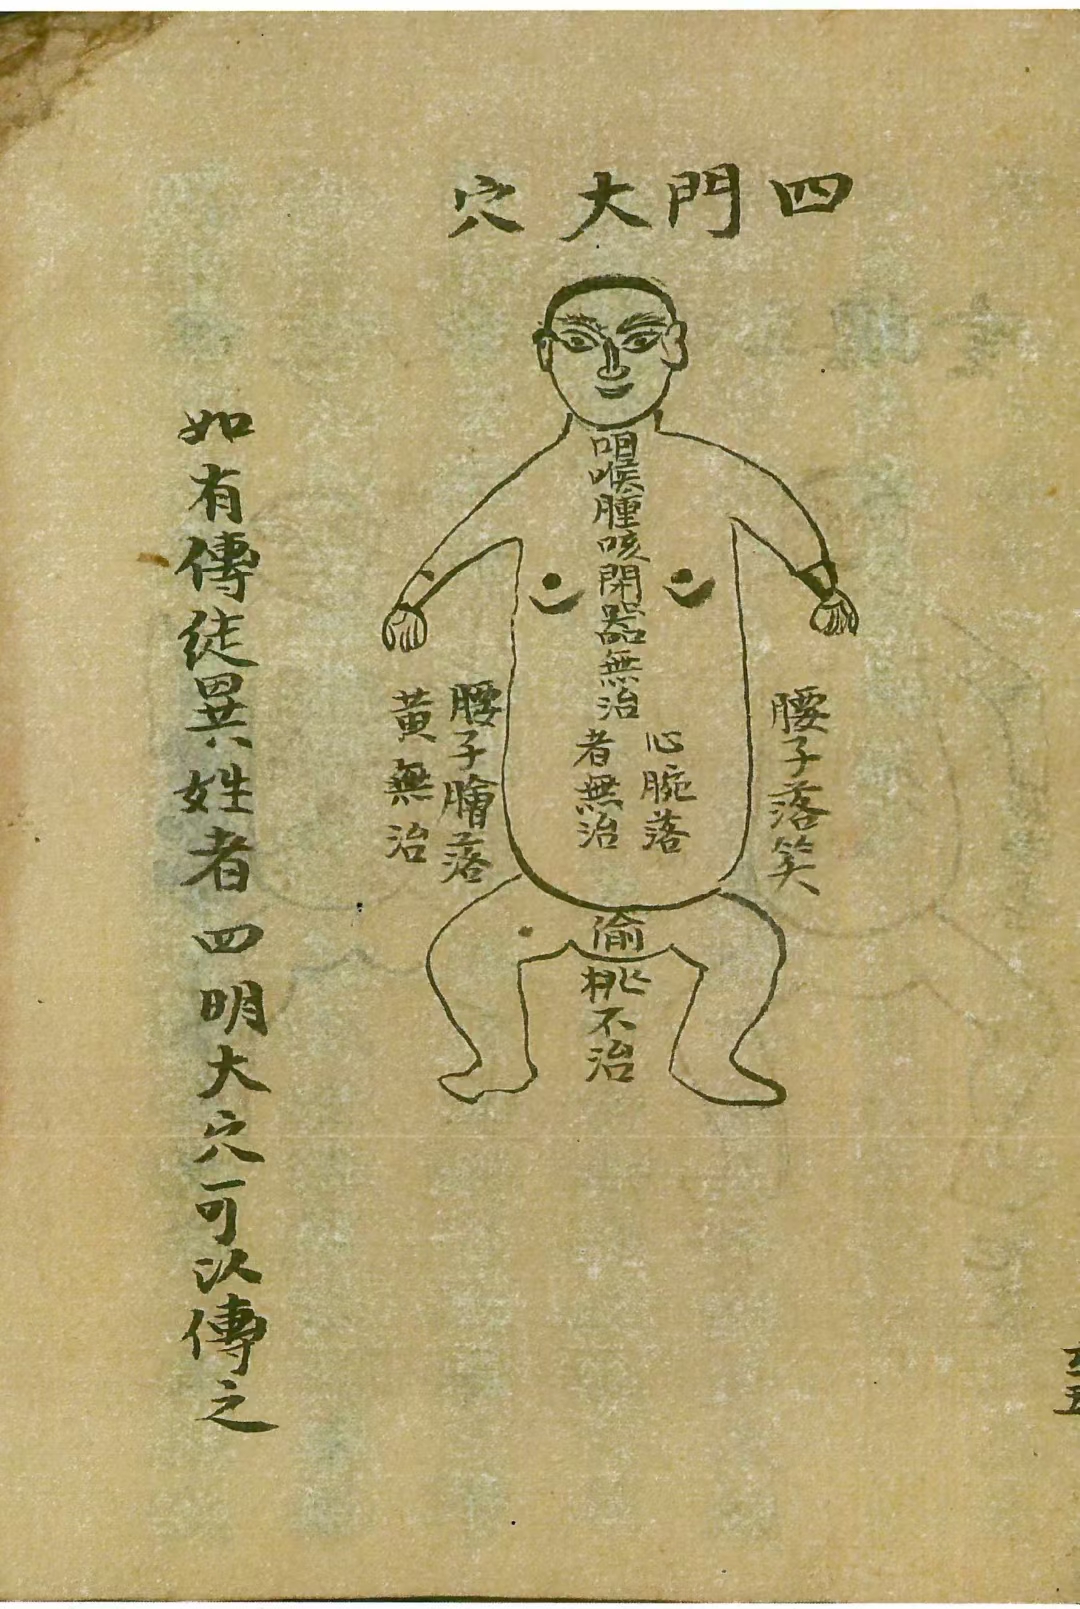 四門大穴
咽喉腫咳閉器無治
心腕落
者無治
腰子落笑
腰子膾落
黃無治
偷桃不治
如有傳徒異姓者四明大穴可以傳之